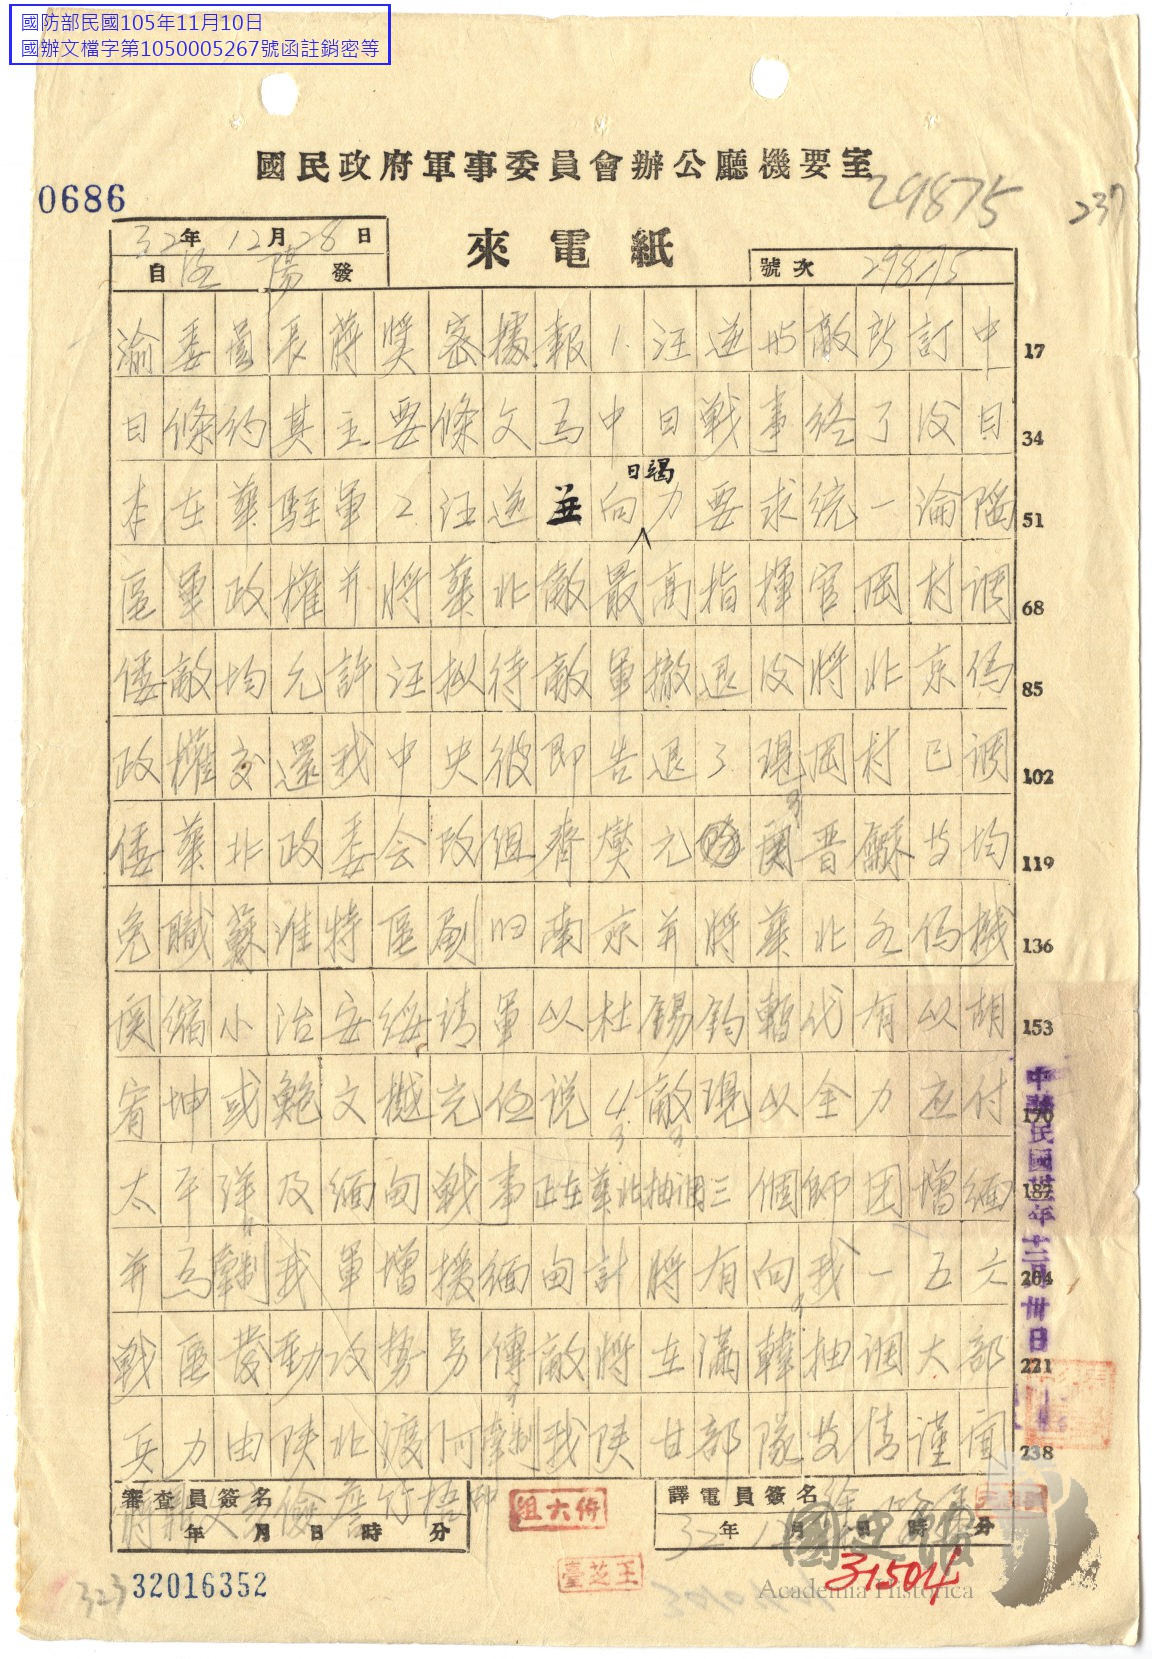 國防部民國105年11月10日
國辦文檔字第1050005267號函註銷密等
國民政府軍事委員會辦公廳機要室
0686
29875
237
32年12月28日
來電紙
自洛陽發
號次 29875
渝委員長蔣奬密據報1.汪逆與敵所訂中 17
日條約其主要條文爲中日戰事終了後日 34
本在華駐軍2.汪逆並向日竭力要求統一淪陷 51
區軍政權并將華北敵最高指揮官岡村調 68
倭敵均允許汪拟待敵軍撤退後將北京偽 85
政權交還我中央彼即告退3.現岡村已調 102
倭華北政委会改組齊燮元 晋 等均 119
免職蘇淮特區劃归南京并將華北各偽機 136
関縮小治安綏靖軍以杜錫鈞暫代有以胡 153
宥坤或鮑文樾充任说4.敵現以全力应付 170
太平洋及緬甸戰事正在華北抽調三個師团增緬 187
并為牽制我軍增援緬甸計將有向我一五六 204
戰區發動攻勢另傳敵將在滿韓抽調大部 221
兵力由陕北渡河牽制我陕甘部隊等情謹聞 238
中華民國卅二年十二月卅日
審查員簽名
年 月 日 時 分
蔣鼎文 儉詹竹梧印
組六侍
譯電員簽名
32年12月 日 時 分
臺芝王
323
32016352
31504
國史館
Academia Historica